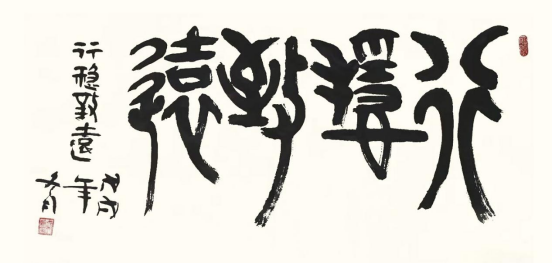 行穩致遠
行穩致遠
戊戌
年